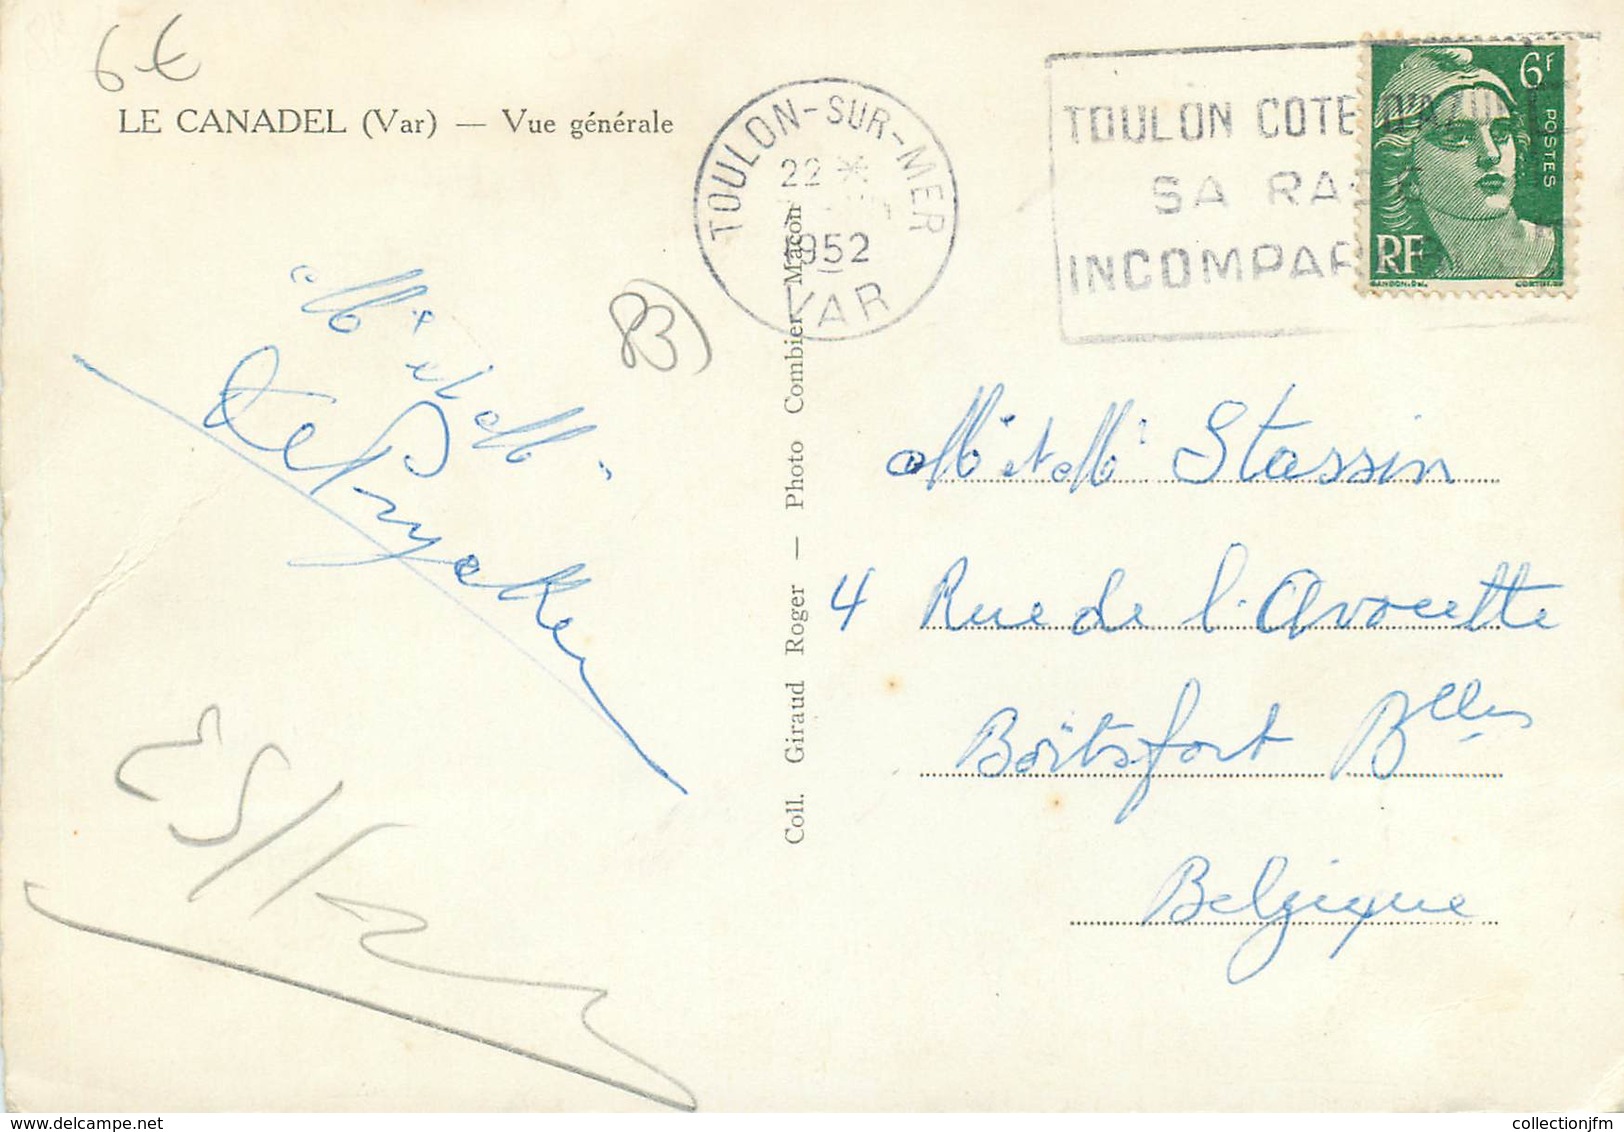 6€
LE CANADEL (Var) — Vue générale
TOULON-SUR-MER
22 *
1952
VAR
TOULON COTE D'AZUR
SA RADE
INCOMPAR
6F
POSTES
RF
GANDON.
83
Mr et Mme
De Prycker
Coll. Giraud Roger — Photo Combier Macon
Mr et Mme Stassin
4 Rue de l'Avocette
Boitsfort Bxlles
Belgique
collectionjfm